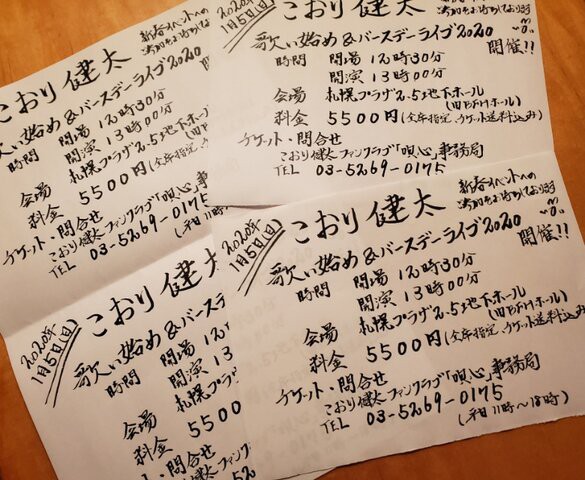 こおり健太
歌い始め&バースデーライブ2020
時間 開場 12時30分
開演 13時00分
会場 札幌プラザ2.5地下ホール
(旧BFHホール)
料金 5500円(全席指定、チケット送料込み)
チケット・問合せ
こおり健太ファンクラブ「唄心」事務
TEL 03-5269-0175
(平日11時~
2020年
1月5日(日)
こおり健太
新春イベントへの
ご参加をお待ちしております
歌い始め&バースデーライブ2020
開催!!
時間 開場 12時30分
開演 13時00分
会場 札幌プラザ2.5地下ホール
(旧BFHホール)
料金 5500円(全席指定、チケット送料込み)
チケット・問合せ
こおり健太ファンクラブ「唄心」事務局
TEL 03-5269-0175
2020年
1月5日(日)
こおり健太
歌い始め&バースデー
時間 開場 12
開演 13
会場 札幌プラ
料金 5500
チケット・問合せ
こおり健太ファンク
TEL 03-52
2020年
1月5日(日)
こおり健太
新春イベントへの
ご参加をお待ちしております
歌い始め&バースデーライブ2020
開催!!
時間 開場 12時30分
開演 13時00分
会場 札幌プラザ2.5地下ホール
(旧BFHホール)
料金 5500円(全席指定、チケット送料込み)
チケット・問合せ
こおり健太ファンクラブ「唄心」事務局
TEL 03-5269-0175
(平日11時~18時)